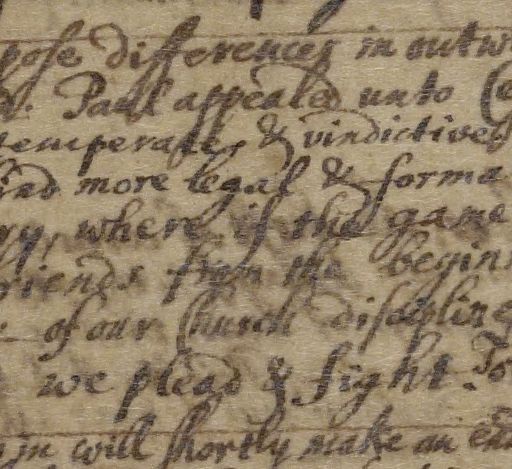 pose differences in outw
Paul appealed unto
temperate, & vindictives
and more legal & forma
ry, where if the game
riends from the begin
of our Church discipline
we plead & fight. To
in will shortly make an end